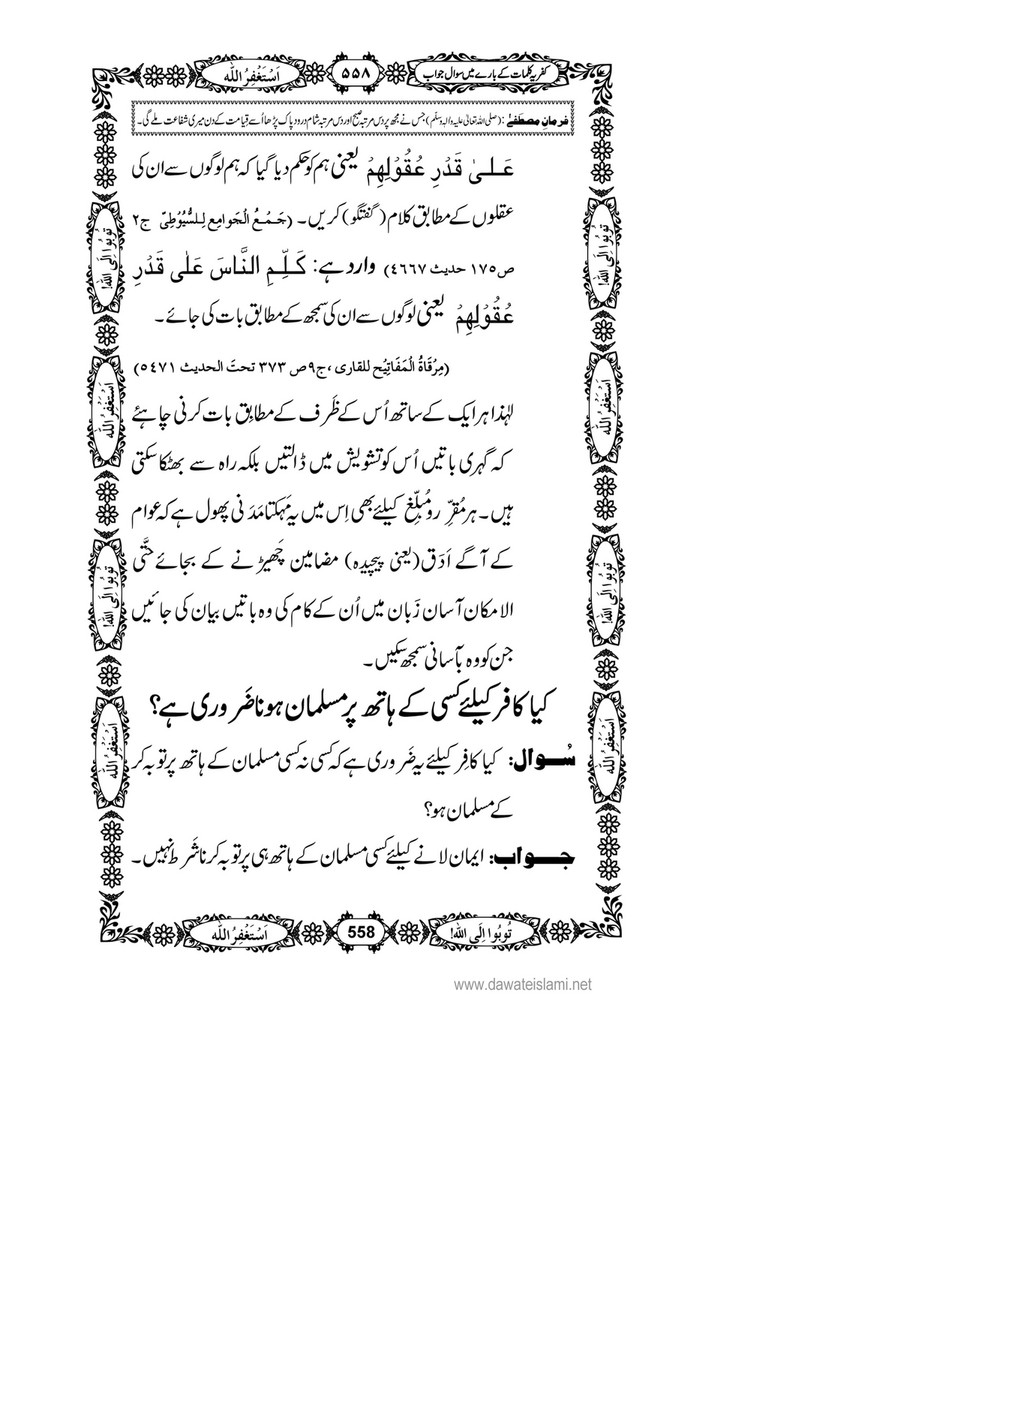 کفریہ کلمات کے بارے میں سوال جواب
۵۵۸
اَسْتَغْفِرُ اللّٰه
فرمانِ مصطفیٰ: (صلی اللہ تعالیٰ علیہ والہ وسلم) جس نے مجھ پر دس مرتبہ صبح اور دس مرتبہ شام درود پاک پڑھا اُسے قیامت کے دن میری شفاعت ملے گی۔
عَلٰی قَدْرِ عُقُوْلِهِمْ یعنی ہم کو حکم دیا گیا کہ ہم لوگوں سے ان کی
عقلوں کے مطابق کلام (گفتگو) کریں۔ (جَمْعُ الْجَوامِع لِلسُّیُوْطِیّ ج۲
ص۱۷۵ حدیث ۴۶۶۷) وارد ہے: کَلِّمِ النَّاسَ عَلٰی قَدْرِ
عُقُوْلِهِمْ یعنی لوگوں سے ان کی سمجھ کے مطابق بات کی جائے۔
(مِرْقَاةُ الْمَفَاتِیْح للقاری ،ج۹ص ۳۷۳ تحتَ الحدیث ۵۴۷۱)
لہٰذا ہر ایک کے ساتھ اُس کے ظَرف کے مطابِق بات کرنی چاہئے
کہ گہری باتیں اُس کو تشویش میں ڈالتیں بلکہ راہ سے بھٹکا سکتی
ہیں۔ ہر مُقرِّر و مُبلِّغ کیلئے بھی اِس میں یہ مَہکتا مَدَنی پھول ہے کہ عوام
کے آگے اَدَق (یعنی پیچیدہ) مضامین چَھیڑنے کے بجائے حتَّی
الامکان آسان زَبان میں اُن کے کام کی وہ باتیں بیان کی جائیں
جن کو وہ بآسانی سمجھ سکیں۔
کیا کافر کیلئے کسی کے ہاتھ پر مسلمان ہونا ضَروری ہے؟
سُوال: کیا کافِر کیلئے یہ ضَروری ہے کہ کسی نہ کسی مسلمان کے ہاتھ پر توبہ کر
کے مسلمان ہو؟
جواب: ایمان لانے کیلئے کسی مسلمان کے ہاتھ ہی پر توبہ کرنا شَرط نہیں۔
تُوبُوا اِلَی اللّٰه!
اَسْتَغْفِرُ اللّٰه
تُوبُوا اِلَی اللّٰه!
اَسْتَغْفِرُ اللّٰه
تُوبُوا اِلَی اللّٰه!
اَسْتَغْفِرُ اللّٰه
تُوبُوا اِلَی اللّٰه!
اَسْتَغْفِرُ اللّٰه
تُوبُوا اِلَی اللّٰه!
558
اَسْتَغْفِرُ اللّٰه
www.dawateislami.net